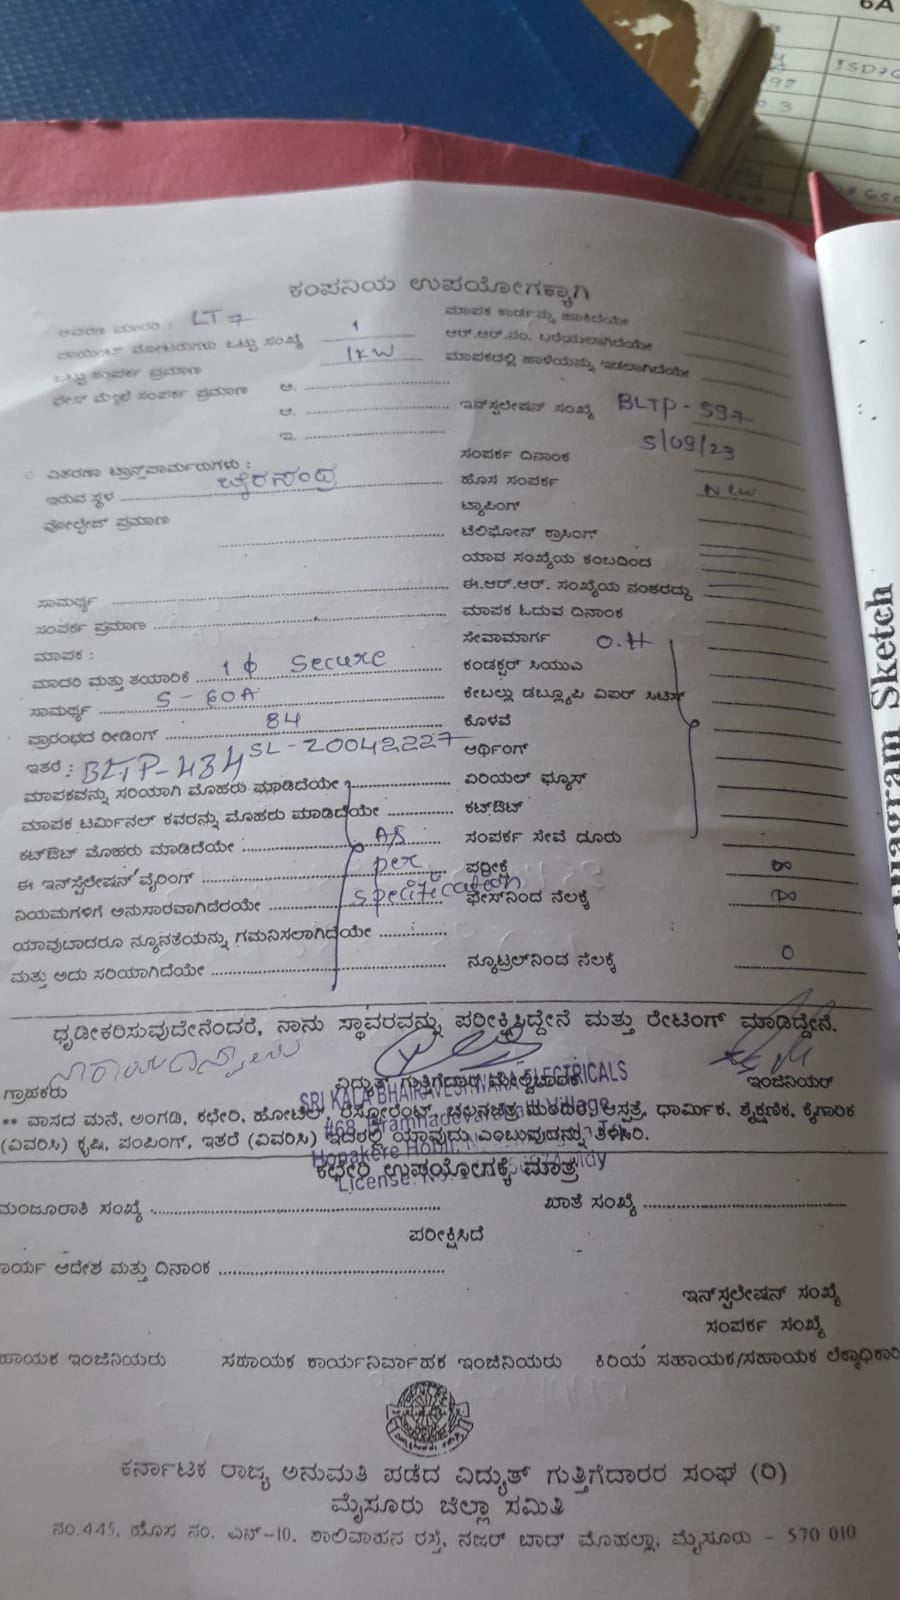 6A
ಕಂಪನಿಯ ಉಪಯೋಗಕ್ಕಾಗಿ
LT 7
ಮಾಪಕ ಕಾರ್ಡನ್ನು ಹಾಕಿದೆಯೇ
ಪಾಯಿಂಟ್ ಮೋಟರುಗಳು ಒಟ್ಟು ಸಂಖ್ಯೆ 1
ಆರ್.ಆರ್.ನಂ. ಬರೆಯಲಾಗಿದೆಯೇ
ಒಟ್ಟು ಸಂಪರ್ಕ ಪ್ರಮಾಣ 1KW
ಮಾಪಕದಲ್ಲಿ ಹಾಳೆಯನ್ನು ಇಡಲಾಗಿದೆಯೇ
ಫೇಸ್ ಮೇಲೆ ಸಂಪರ್ಕ ಪ್ರಮಾಣ ಅ.
ಆ.
ಇನ್‌ಸ್ಟಲೇಷನ್ ಸಂಖ್ಯೆ BLTP - 597
ಇ.
ಸಂಪರ್ಕ ದಿನಾಂಕ 5/09/23
ವಿತರಣಾ ಟ್ರಾನ್ಸ್‌ಫಾರ್ಮರುಗಳು :
ಹೊಸ ಸಂಪರ್ಕ New
ಇರುವ ಸ್ಥಳ
ಟ್ಯಾಪಿಂಗ್
ವೋಲ್ಟೇಜ್ ಪ್ರಮಾಣ
ಟೆಲಿಫೋನ್ ಕ್ರಾಸಿಂಗ್
ಯಾವ ಸಂಖ್ಯೆಯ ಕಂಬದಿಂದ
ಸಾಮರ್ಥ್ಯ
ಈ.ಆರ್.ಆರ್. ಸಂಖ್ಯೆಯ ನಂತರದ್ದು
ಸಂಪರ್ಕ ಪ್ರಮಾಣ
ಮಾಪಕ ಓದುವ ದಿನಾಂಕ
ಮಾಪಕ :
ಸೇವಾಮಾರ್ಗ O.H
ಮಾದರಿ ಮತ್ತು ತಯಾರಿಕೆ 1 ϕ Secure
ಕಂಡಕ್ಟರ್ ಸಿಯುಎ
ಸಾಮರ್ಥ್ಯ 5 - 60A
ಕೇಬಲ್ಲು ಡಬ್ಲ್ಯೂಪಿ ವಿಐಆರ್
ಪ್ರಾರಂಭದ ರೀಡಿಂಗ್ 84
ಕೊಳವೆ
ಇತರೆ : BLTP-434 SL-20042227
ಅರ್ಥಿಂಗ್
ಮಾಪಕವನ್ನು ಸರಿಯಾಗಿ ಮೊಹರು ಮಾಡಿದೆಯೇ
ಏರಿಯಲ್ ಫ್ಯೂಸ್
ಮಾಪಕ ಟರ್ಮಿನಲ್ ಕವರನ್ನು ಮೊಹರು ಮಾಡಿದೆಯೇ
ಕಟ್‌ಔಟ್
ಕಟ್‌ಔಟ್ ಮೊಹರು ಮಾಡಿದೆಯೇ As
ಸಂಪರ್ಕ ಸೇವೆ ದೂರು
ಈ ಇನ್‌ಸ್ಟಲೇಷನ್ ವೈರಿಂಗ್ per
ಪರೀಕ್ಷೆ ∞
ನಿಯಮಗಳಿಗೆ ಅನುಸಾರವಾಗಿದೆರಯೇ specification
ಫೇಸ್‌ನಿಂದ ನೆಲಕ್ಕೆ ∞
ಯಾವುದಾದರೂ ನ್ಯೂನತೆಯನ್ನು ಗಮನಿಸಲಾಗಿದೆಯೇ
ಮತ್ತು ಅದು ಸರಿಯಾಗಿದೆಯೇ
ನ್ಯೂಟ್ರಲ್‌ನಿಂದ ನೆಲಕ್ಕೆ 0
ಧೃಡೀಕರಿಸುವುದೇನೆಂದರೆ, ನಾನು ಸ್ಥಾವರವನ್ನು ಪರೀಕ್ಷಿಸಿದ್ದೇನೆ ಮತ್ತು ರೇಟಿಂಗ್ ಮಾಡಿದ್ದೇನೆ.
ಗ್ರಾಹಕರು
ವಿದ್ಯುತ್ ಗುತ್ತಿಗೆದಾರ ಮೇಲ್ವಿಚಾರಕ
ಇಂಜಿನಿಯರ್
SRI KALA BHAIRAVESHWARA ELECTRICALS
** ವಾಸದ ಮನೆ, ಅಂಗಡಿ, ಕಛೇರಿ, ಹೋಟೆಲ್, ರೆಸ್ಟೋರೆಂಟ್, ಚಲನಚಿತ್ರ ಮಂದಿರ, ಆಸ್ಪತ್ರೆ, ಧಾರ್ಮಿಕ, ಶೈಕ್ಷಣಿಕ, ಕೈಗಾರಿಕ
(ವಿವರಿಸಿ) ಕೃಷಿ, ಪಂಪಿಂಗ್, ಇತರೆ (ವಿವರಿಸಿ) ಇದರಲ್ಲಿ ಯಾವುದು ಎಂಬುವುದನ್ನು ತಿಳಿಸಿರಿ.
ಕಛೇರಿ ಉಪಯೋಗಕ್ಕೆ ಮಾತ್ರ
ಮಂಜೂರಾತಿ ಸಂಖ್ಯೆ
ಖಾತೆ ಸಂಖ್ಯೆ
ಪರೀಕ್ಷಿಸಿದೆ
ಾರ್ಯ ಆದೇಶ ಮತ್ತು ದಿನಾಂಕ
ಇನ್‌ಸ್ಟಲೇಷನ್ ಸಂಖ್ಯೆ
ಸಂಪರ್ಕ ಸಂಖ್ಯೆ
ಹಾಯಕ ಇಂಜಿನಿಯರು ಸಹಾಯಕ ಕಾರ್ಯನಿರ್ವಾಹಕ ಇಂಜಿನಿಯರು ಕಿರಿಯ ಸಹಾಯಕ/ಸಹಾಯಕ ಲೆಕ್ಕಾಧಿಕಾರಿ
ಕರ್ನಾಟಕ ರಾಜ್ಯ ಅನುಮತಿ ಪಡೆದ ವಿದ್ಯುತ್ ಗುತ್ತಿಗೆದಾರರ ಸಂಘ (ರಿ)
ಮೈಸೂರು ಜಿಲ್ಲಾ ಸಮಿತಿ
ನಂ.445, ಹೊಸ ನಂ. ಎನ್-10, ಶಾಲಿವಾಹನ ರಸ್ತೆ, ನಜರ್ ಬಾದ್ ಮೊಹಲ್ಲಾ, ಮೈಸೂರು - 570 010
Sketch